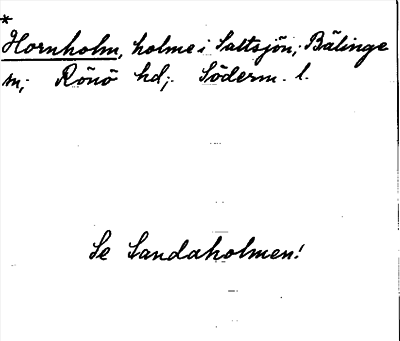 *
Hornholm, holme i Saltsjön, Bälinge
sn; Rönö hd; Söderm. l.
Se Sandaholmen!